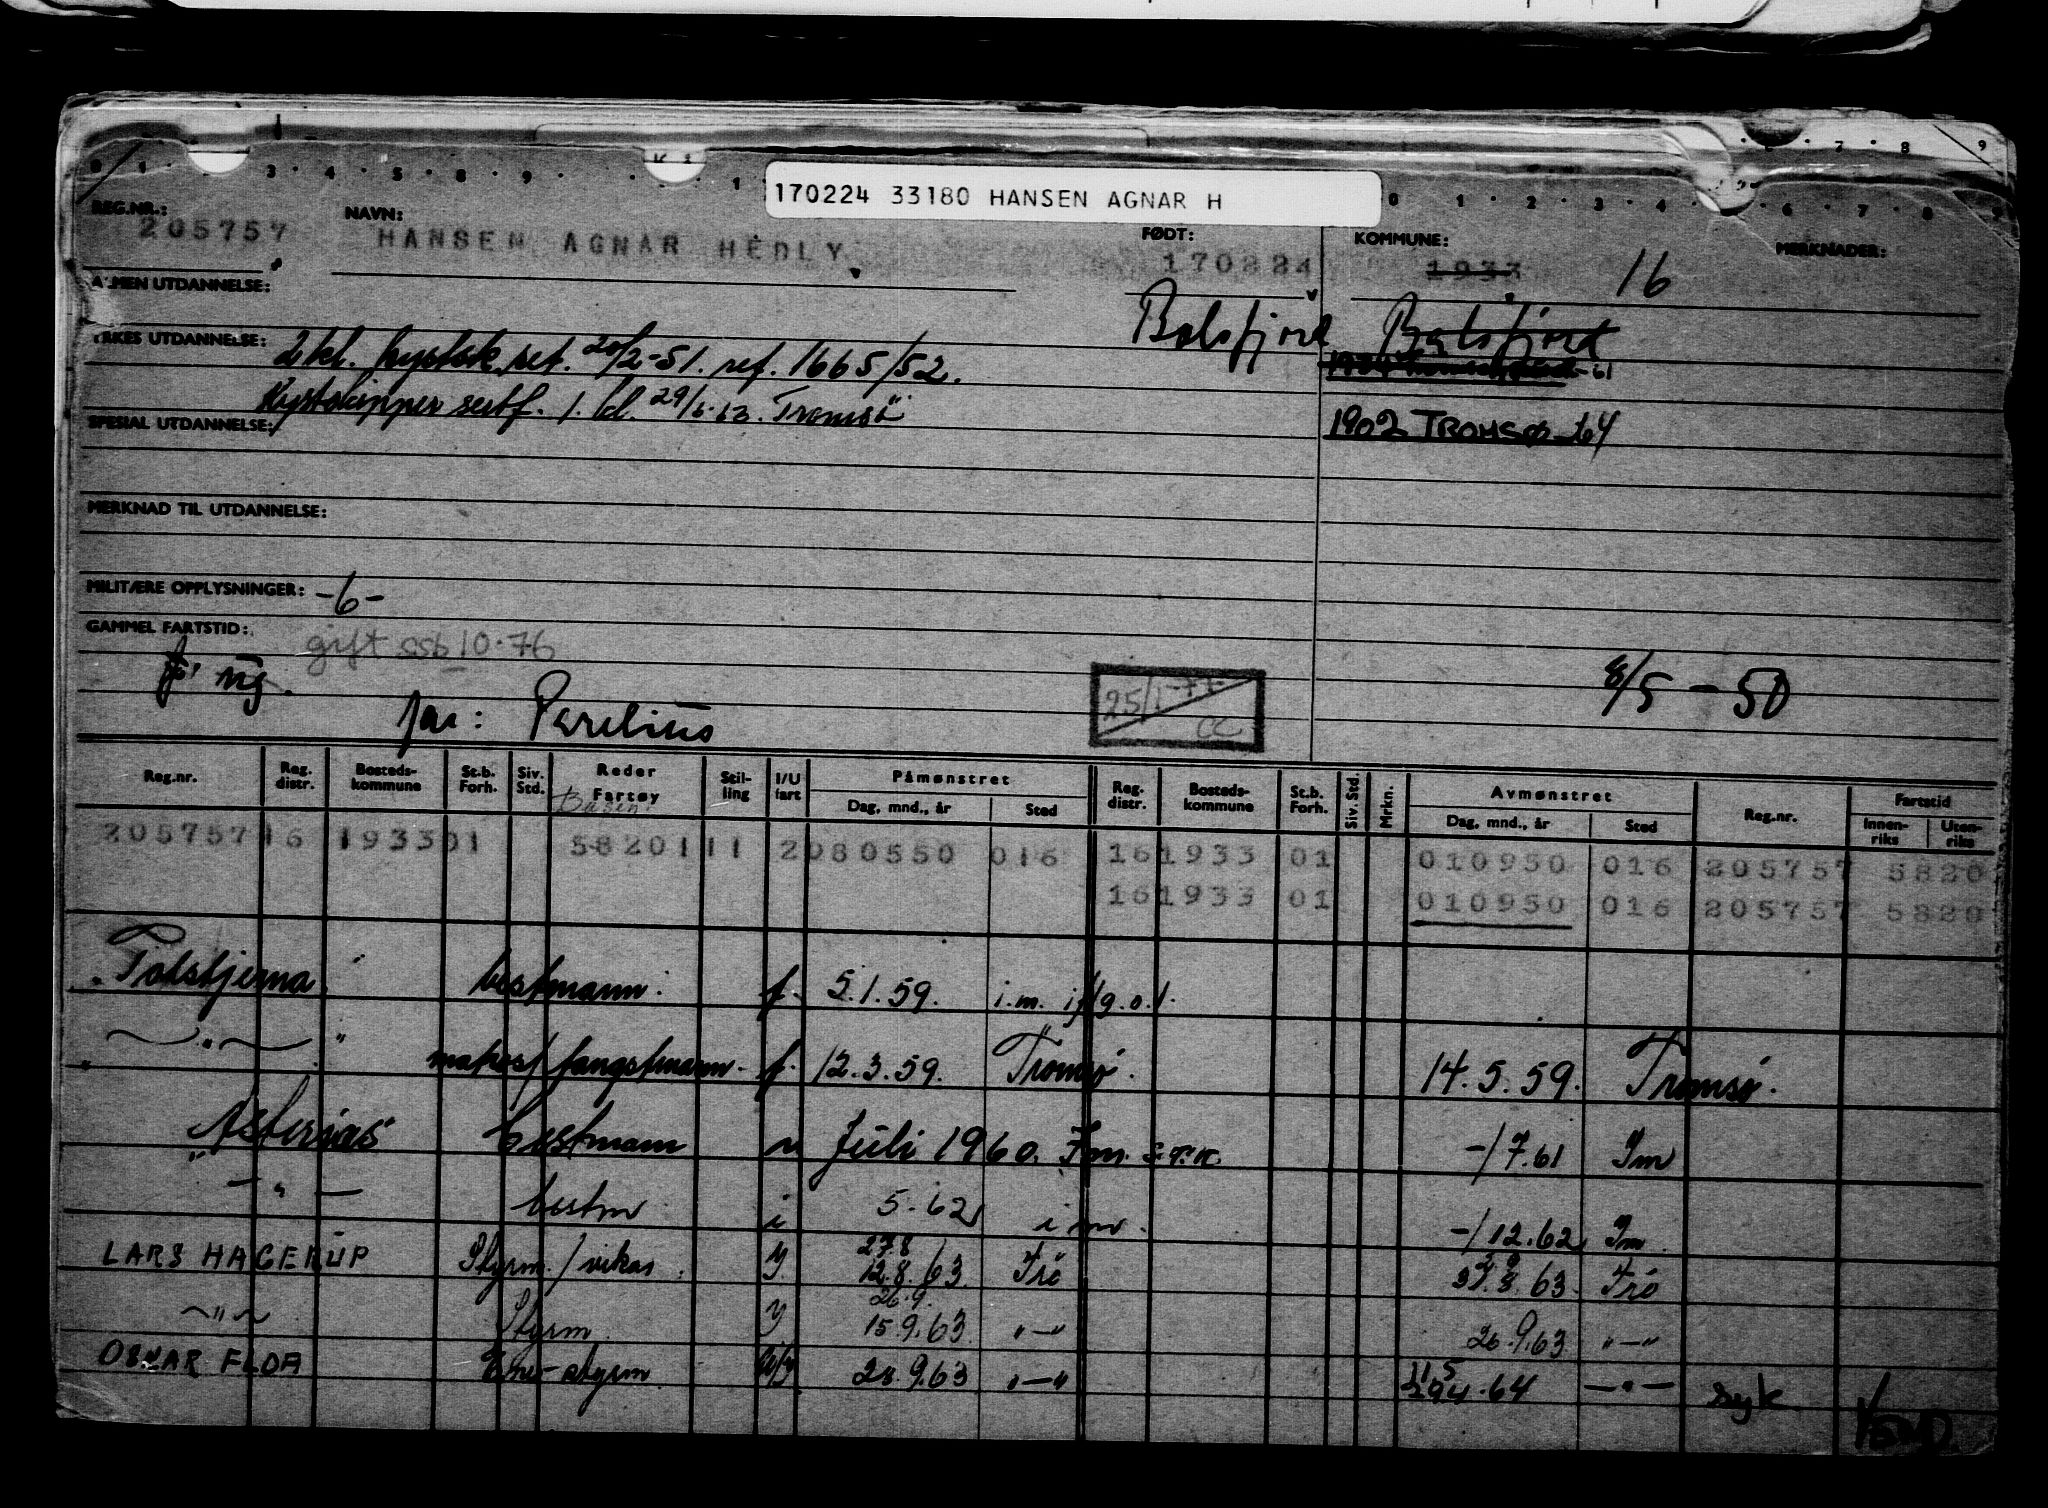 170224 33180 HANSEN AGNAR H
REG.NR.: NAVN: FØDT: KOMMUNE: MERKNADER:
205757 HANSEN AGNAR HEDLY 170224 1933 16
ALMEN UTDANNELSE: Balsfjord Balsfjord
YRKES UTDANNELSE: 2 kl. kystsk. sert. 20/2-51. ref. 1665/52.
Kystskipper sertf. 1. kl. 29/6.63. Tromsö
1902 TROMSØ -64
SPESIAL UTDANNELSE:
MERKNAD TIL UTDANNELSE:
MILITÆRE OPPLYSNINGER: -6-
GAMMEL FARTSTID:
gift ssb 10.76
25/1-77. CC
8/5 - 50
Parelius
Reg.nr. Reg. distr. Bosteds- kommune St.b. Forh. Siv. Std. Reder Fartøy Stil- ling I/U fart Påmønstret Dag, mnd., år Sted Reg. distr. Bosteds- kommune St.b. Forh. Siv. Std. Mrkn. Avmønstret Dag, mnd., år Sted Reg.nr. Fartstid Innen- riks Uten- riks
205757 16 1933 01 5820 111 2 080550 016 16 1933 01 010950 016 205757 5820
16 1933 01 010950 016 205757 5820
"Polstjerna" bestmann. f. 5.1.59. i.m. iflg.o.l.
" matros/fangstmann. f. 12.3.59. Tromsö. 14.5.59. Tromsö.
"Asterias" bestmann n Juli 1960. I m. -/7.61 Im
— " — bestm i 5.62 i m. -/12.62 Im
LARS HAGERUP Styrm./vikar. Y 27.8 12.8.63 Trö .63 Trö
— " — Styrm. Y 26.9. 15.9.63 " — " 26.9.63 " — "
Ene-styrm .9.63 " — " 11.5 29.4.64 — " — syk
VEND